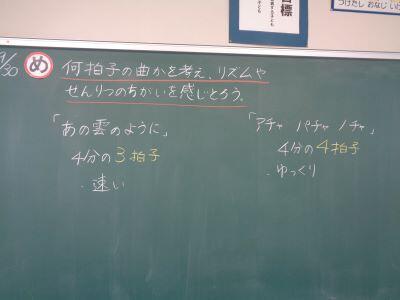 目標
つけたし おなじ いけ
め
何拍子の曲かを考え、リズムや
せんりつのちがいを感じとろう。
「あの雲のように」
4分の3拍子
・速い
「アチャ パチャ ノチャ」
4分の4拍子
・ゆっくり